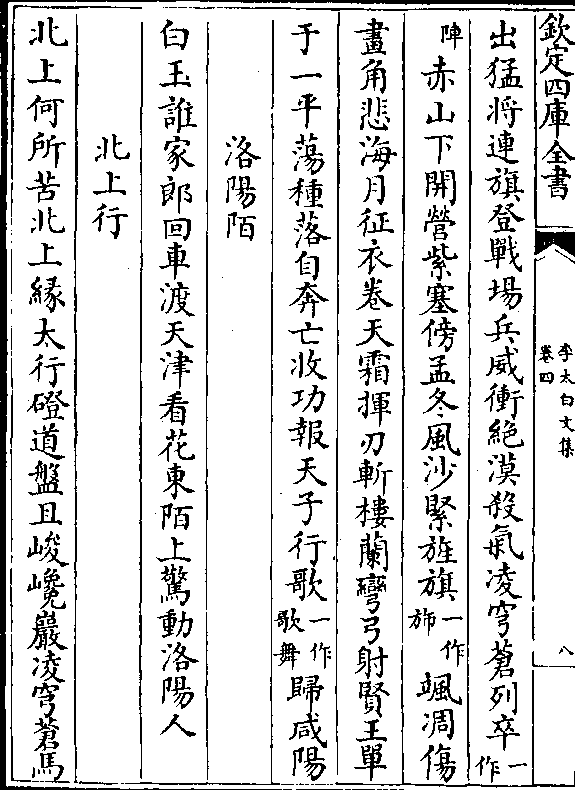 欽定四庫全書
李太白文集
卷四
八
出猛将連旗登戰場兵威衝絶漠殺氣凌穹蒼列卒一作
陣赤山下開營紫塞傍孟冬風沙緊旌旗一作斾颯凋傷
畫角悲海月征衣卷天霜揮刃斬樓蘭彎弓射賢王單
于一平蕩種落自奔亡收功報天子行歌一作歌舞歸咸陽
洛陽陌
白玉誰家郎回車渡天津看花東陌上驚動洛陽人
北上行
北上何所苦北上緣太行磴道盤且峻巉巖凌穹蒼馬